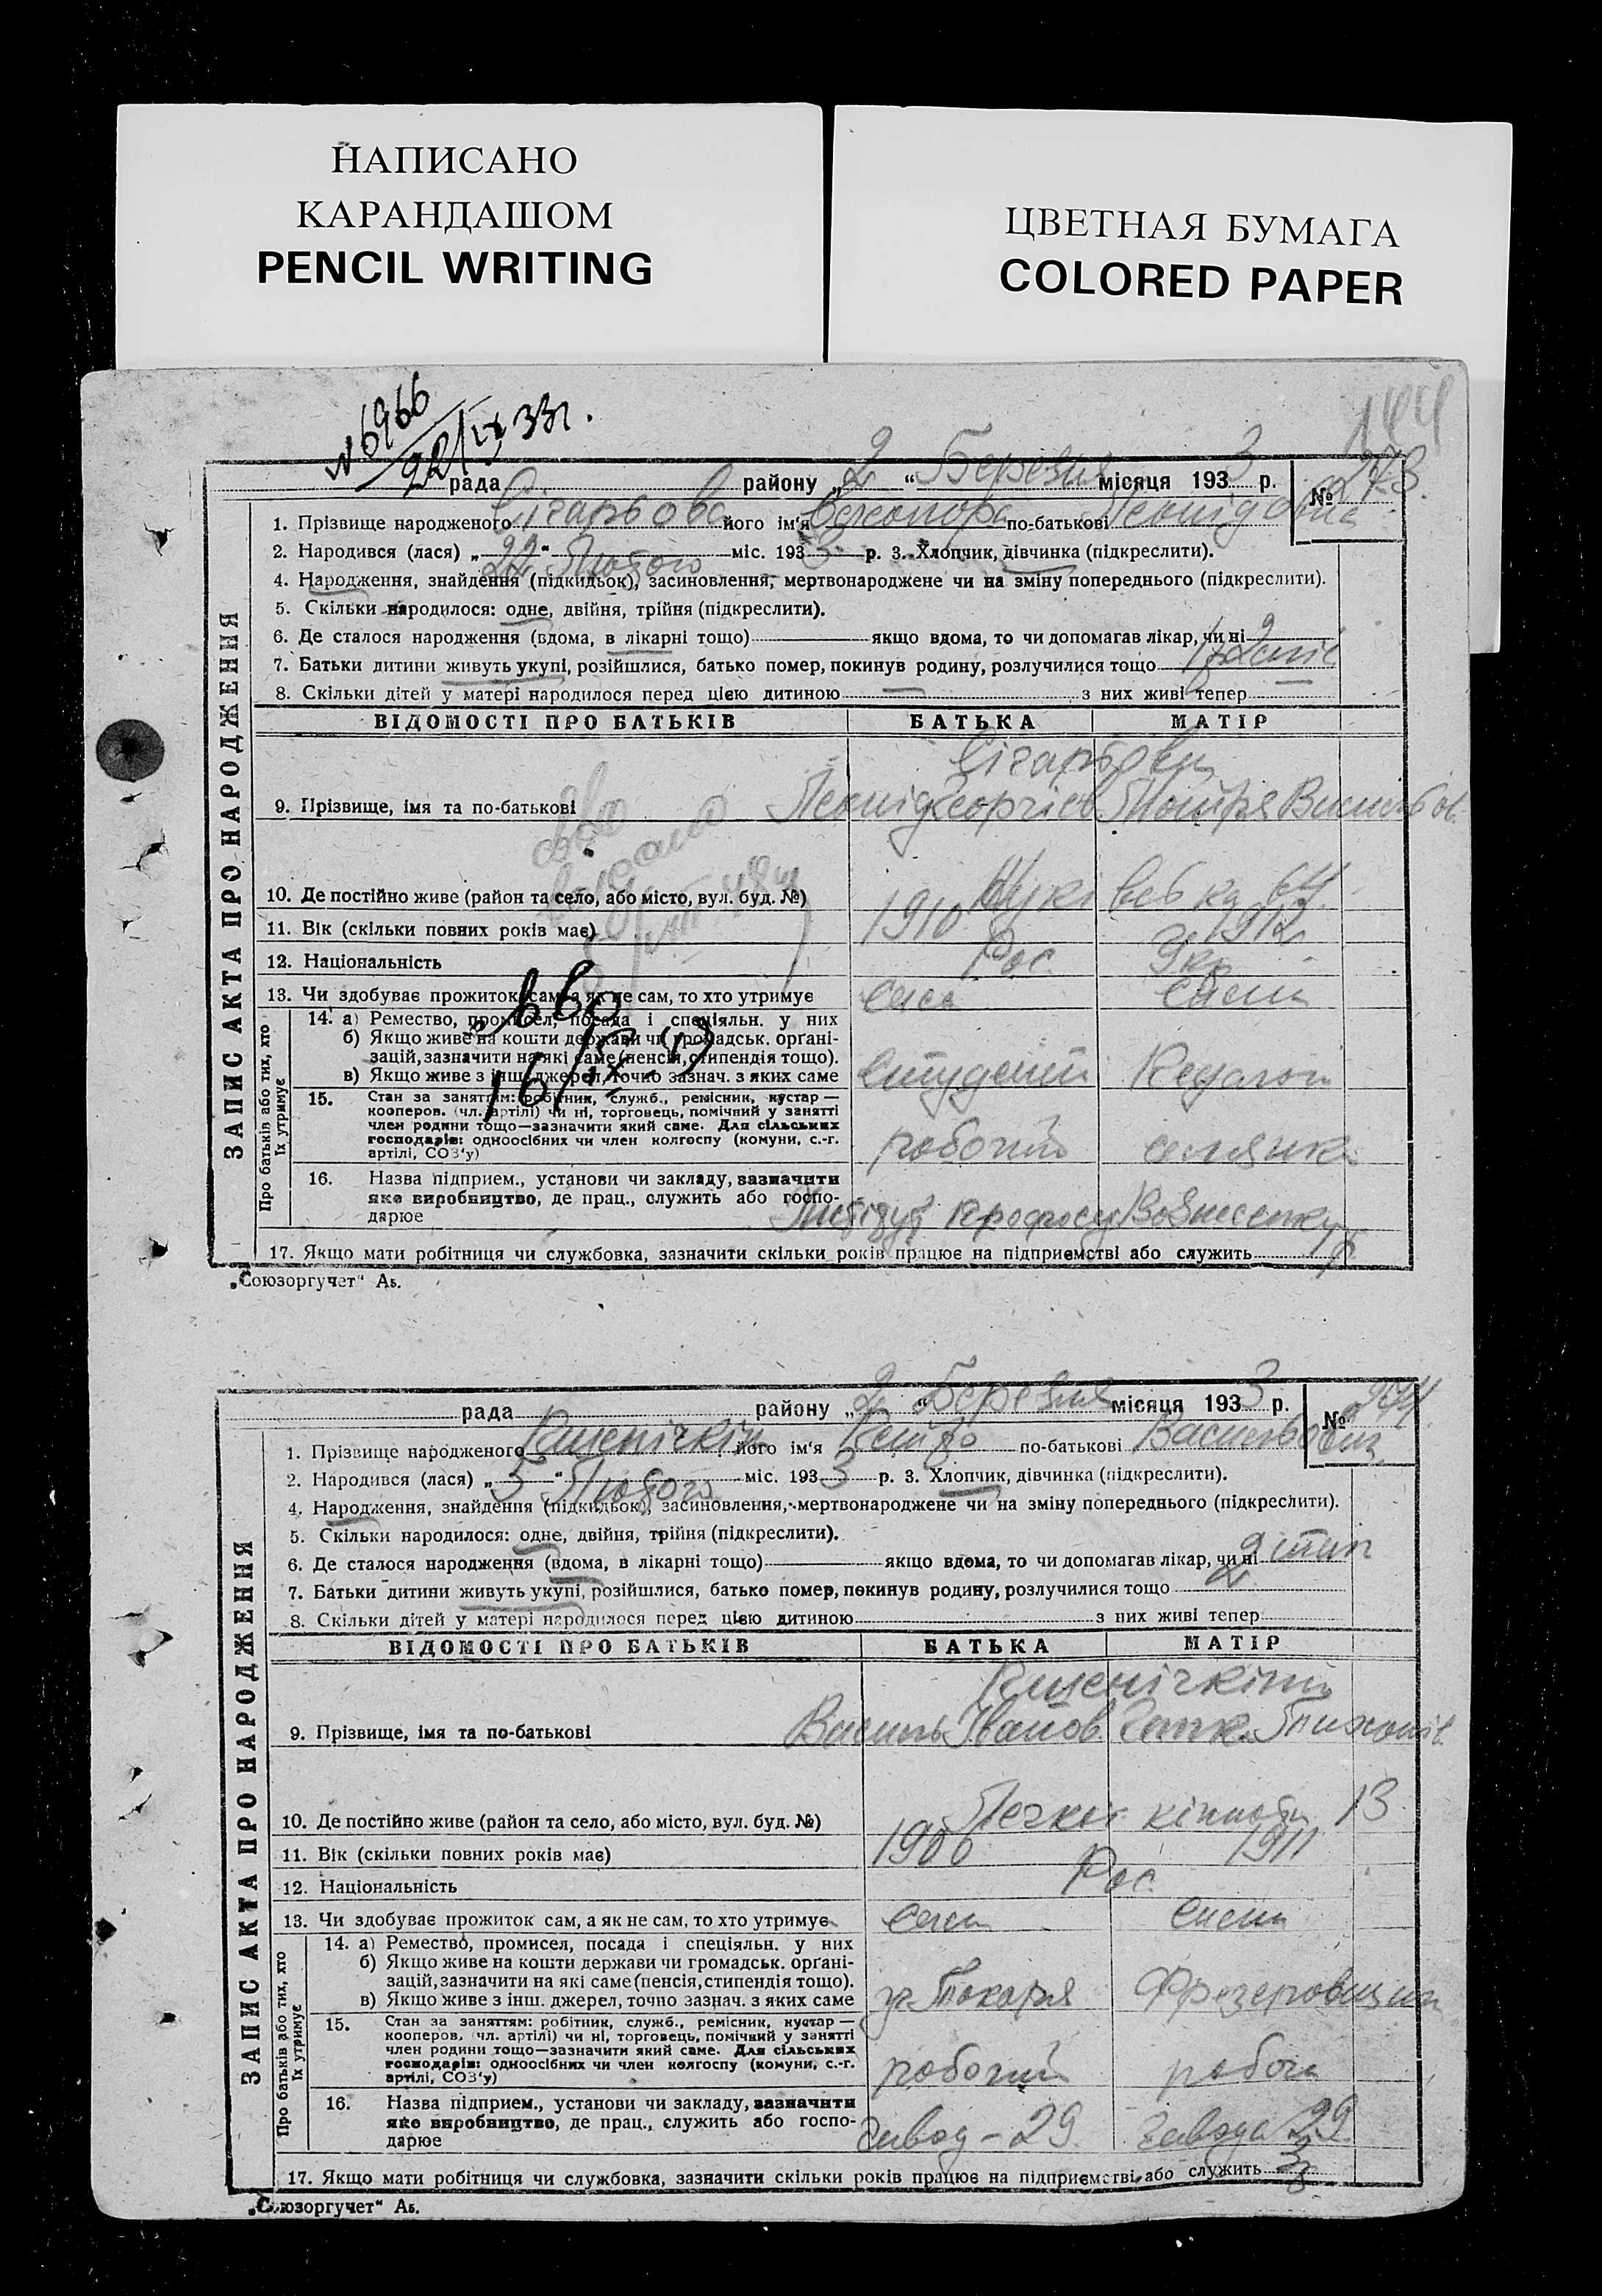 НАПИСАНО
КАРАНДАШОМ
PENCIL WRITING
ЦВЕТНАЯ БУМАГА
COLORED PAPER
№6966
22/IX 33г.
144
рада району „2“ Березня місяця 1933 р. № 243.
1. Прізвище народженого його ім'я по-батькові Леонідовна
2. Народився (лася) „22“ Лютого міс. 1933 р. 3. Хлопчик, дівчинка (підкреслити).
4. Народження, знайдення (підкидьок), засиновлення, мертвонароджене чи на зміну попереднього (підкреслити).
5. Скільки народилося: одне, двійня, трійня (підкреслити).
6. Де сталося народження (вдома, в лікарні тощо) якщо вдома, то чи допомагав лікар, чи ні
7. Батьки дитини живуть укупі, розійшлися, батько помер, покинув родину, розлучилися тощо
8. Скільки дітей у матері народилося перед цією дитиною — з них живі тепер
ЗАПИС АКТА ПРО НАРОДЖЕННЯ
ВІДОМОСТІ ПРО БАТЬКІВ БАТЬКА МАТІР
9. Прізвище, імя та по-батькові Леонід Георгіев
10. Де постійно живе (район та село, або місто, вул. буд. №) 64
11. Вік (скільки повних років має) 1910 1912
12. Національність Рос. Укр
13. Чи здобуває прожиток сам, а як не сам, то хто утримує сам сама
Про батьків або тих, хто їх утримує
14. а) Ремество, промисел, посада і спеціяльн. у них
б) Якщо живе на кошти держави чи громадськ. орґані-
зацій, зазначити на які саме (пенсія, стипендія тощо).
в) Якщо живе з інш. джерел, точно зазнач. з яких саме студент Педагог
15. Стан за заняттям: робітник, служб., ремісник, кустар —
кооперов. (чл. артілі) чи ні, торговець, помічний у занятті
член родини тощо—зазначити який саме. Для сільських
господарів: одноосібних чи член колгоспу (комуни, с.-г.
артілі, СОЗ'у) робочий селянка
16. Назва підприєм., установи чи закладу, зазначити
яке виробництво, де прац., служить або госпо-
дарюе
17. Якщо мати робітниця чи службовка, зазначити скільки років працює на підприємстві або служить
„Союзоргучет“ Аь.
рада району „2“ Березня місяця 1933 р. № 244.
1. Прізвище народженого Пшенічкін його ім'я по-батькові Васильович
2. Народився (лася) „5“ Лютого міс. 1933 р. 3. Хлопчик, дівчинка (підкреслити).
4. Народження, знайдення (підкидьок), засиновлення, мертвонароджене чи на зміну попереднього (підкреслити).
5. Скільки народилося: одне, двійня, трійня (підкреслити).
6. Де сталося народження (вдома, в лікарні тощо) якщо вдома, то чи допомагав лікар, чи ні
7. Батьки дитини живуть укупі, розійшлися, батько помер, покинув родину, розлучилися тощо
8. Скільки дітей у матері народилося перед цією дитиною з них живі тепер
ЗАПИС АКТА ПРО НАРОДЖЕННЯ
ВІДОМОСТІ ПРО БАТЬКІВ БАТЬКА МАТІР
Пшенічкіни
9. Прізвище, імя та по-батькові Василь Іванов.
10. Де постійно живе (район та село, або місто, вул. буд. №) кінноти 13
11. Вік (скільки повних років має) 1906 1911
12. Національність Рос.
13. Чи здобуває прожиток сам, а як не сам, то хто утримує сам сама
Про батьків або тих, хто їх утримує
14. а) Ремество, промисел, посада і спеціяльн. у них
б) Якщо живе на кошти держави чи громадськ. орґані-
зацій, зазначити на які саме (пенсія, стипендія тощо).
в) Якщо живе з інш. джерел, точно зазнач. з яких саме Токаря Фрезеровщица
15. Стан за заняттям: робітник, служб., ремісник, кустар —
кооперов. (чл. артілі) чи ні, торговець, помічний у занятті
член родини тощо—зазначити який саме. Для сільських
господарів: одноосібних чи член колгоспу (комуни, с.-г.
артілі, СОЗ'у) робочий робоч
16. Назва підприєм., установи чи закладу, зазначити
яке виробництво, де прац., служить або госпо-
дарюе завод – 29 завода 29
17. Якщо мати робітниця чи службовка, зазначити скільки років працює на підприємстві або служить
„Союзоргучет“ Аь.